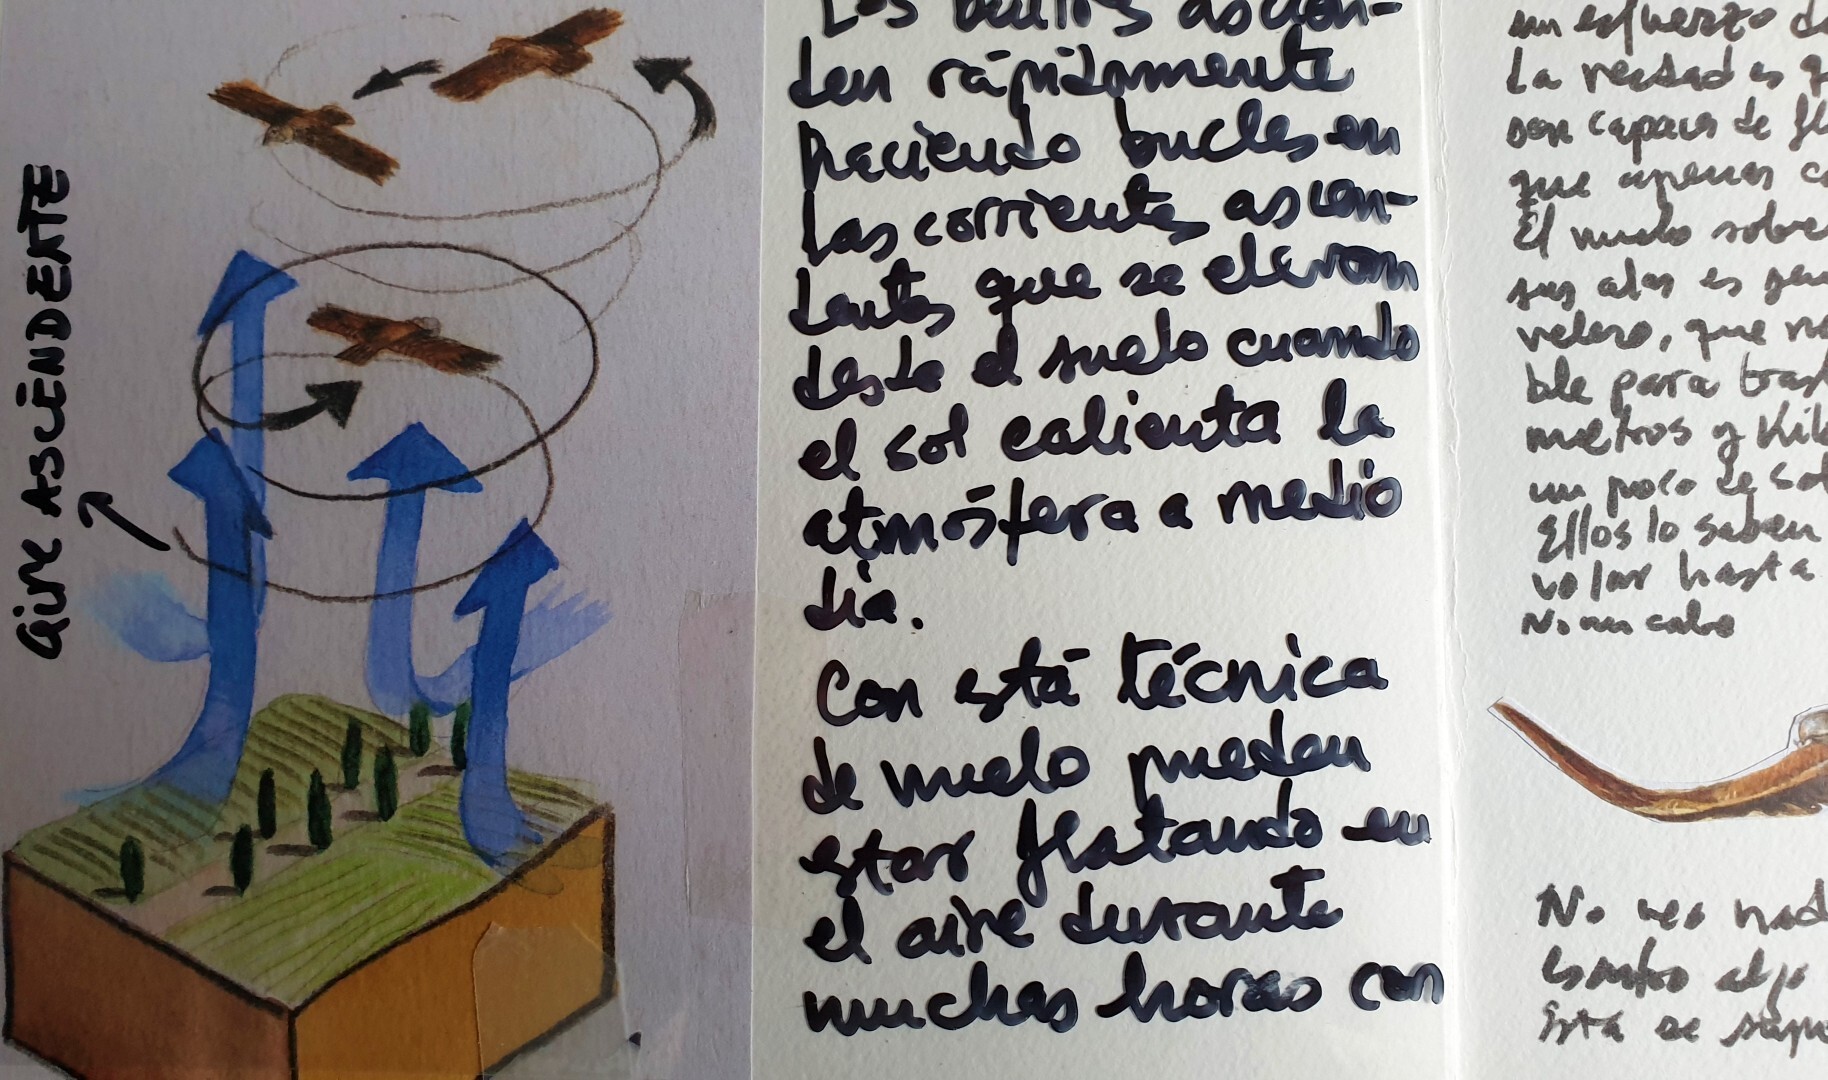 Aire ASCENDENTE
Los buitres ascien-
den rápidamente
haciendo bucles en
las corrientes ascen-
dentes que se elevan
desde el suelo cuando
el sol calienta la
atmósfera a medio
día.
Con está técnica
de vuelo pueden
estar flotando en
el aire durante
muchas horas con
un esfuerzo de
La verdad es q
son capaces de fl
que apenas c
El vuelo sobre
sus alas es
velero, que n
ble para tras
metros y Kil
un poco de sol
Ellos lo saben
volar hasta
No ves nad
algo
Está se